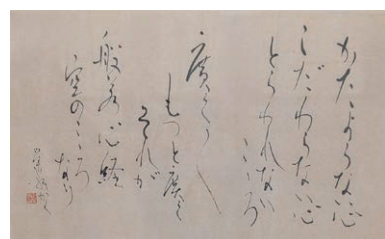 かたよらない心
こだわらない心
とらわれない
こころ
廣く〱
もつと廣く
これが
般若心経
空のこころ
なり